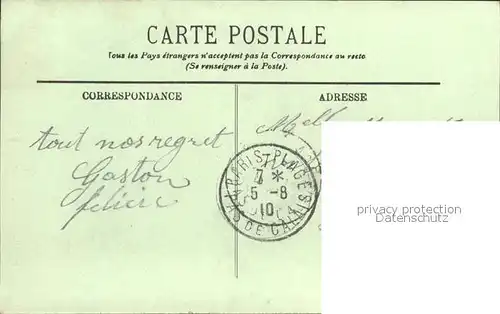 CARTE POSTALE
Tous les Pays étrangers n'acceptent pas la Correspondance au recto
(Se renseigner à la Poste).
CORRESPONDANCE
ADRESSE
tout nos regret
Gaston
felicie
Mell
PARIS-PLAGE
7 *
5 -8
10
PAS DE CALAIS
privacy protection
Datenschutz